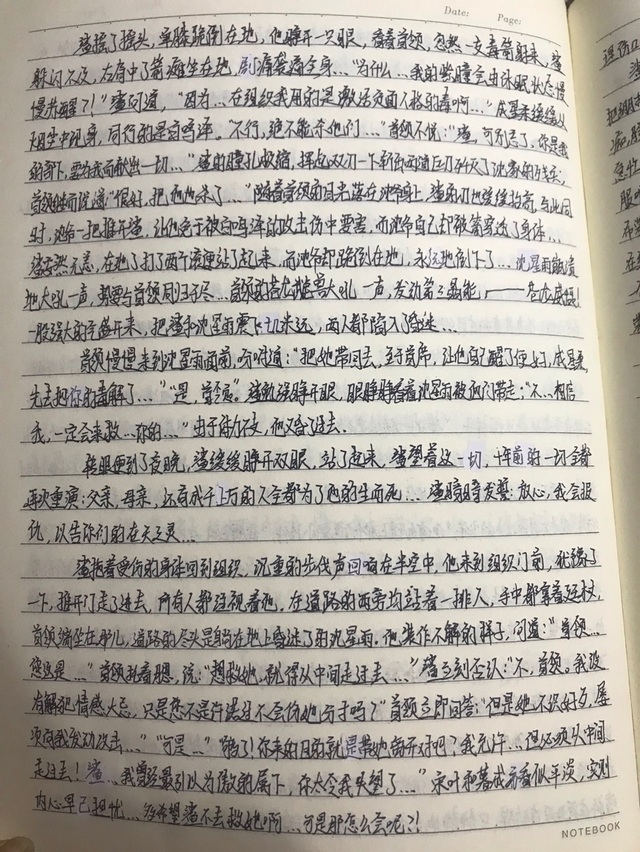 Date: Page:
渣摇了摇头,单膝跪倒在地,他睁开一只眼,看着首领,忽然一支毒箭射来,渣
躲闪不及,右肩中了箭,瘫坐在地,剧痛袭满全身…“为什么…我的紫瞳会由休眠状态慢
慢苏醒了!”渣问道,“因为…在组织我用的是激活负面人格的毒啊…”成星柔缓缓从
阴尘中现身,同行的是白鸣泽。“不行,绝不能杀他们…”首领不悦:“渣,可别忘了,你是我
的身下,要为我而献出一切…”渣的瞳孔收缩,挥点双刃一下斩出两道巨刃歼灭了沈家的残兵,
首领继而说道“很好,把他也杀了…”随着首领的目光落在沈爷身上,渣的刀也缓缓抬高,与此同
时,沈爷一把推开渣,让他免于被白鸣泽的攻击伤中要害,而沈爷自己却被箭穿透了身体…
渣安然无恙,在地上打了两个滚便站了起来,而沈爷却跪倒在地,永远地倒下了…沈星雨愤
地大吼一声,势要与首领同归于尽…首领的雄兽大吼一声,发动第三异能,——
一股强大的气盛开来,把渣和沈星雨震飞几米远,两人都陷入了昏迷…
首领慢慢来到沈星雨面前,吩咐道:“把她带回去,至于首席,让他自己醒了便好,成星柔,
先去把你的毒解了…”“是,首领”渣勉强睁开眼,眼睁睁看着沈星雨被他们带走:“不…相信
我,一定会来救…你的…”由于体力不支,他又昏了过去.
转眼便到了夜晚,渣缓缓睁开双眼,站了起来,渣望着这一切,十年前的一切全都
再次重演:父亲,母亲,还有成千上万的人全都为了他的生而死…渣暗暗发誓:放心,我会报
仇,以告你们的在天之灵…
渣拖着受伤的身体回到组织,沉重的步伐声回响在半空中,他来到组织门前,犹豫了
一下,推开门走了进去,所有人都注视着他,在道路的两旁均站着一排人,手中都拿着廷杖,
首领端坐在那儿,道路的尽头是躺在地上昏迷了的沈星雨.他装作不解的样子,问道:“首领…
您这是…”首领托着腮,说:“想救她,就得从中间走过去…”渣立刻否认:“不,首领。我没
有触犯情感大忌,只是您不是许诺过不会伤她分寸吗?”首领立即回答:“但是她不识好歹,屡
次向我发动攻击…”“可是…”“够了!你来的目的就是带她离开对吧?我允许…但必须从中间
走过去!渣…我曾经最引以为傲的属下,你太令我失望了…”宋叶和暮成雪看似平淡,实则
内心早已担忧…多希望渣不去救她啊…可是那怎么会呢?!
NOTEBOOK